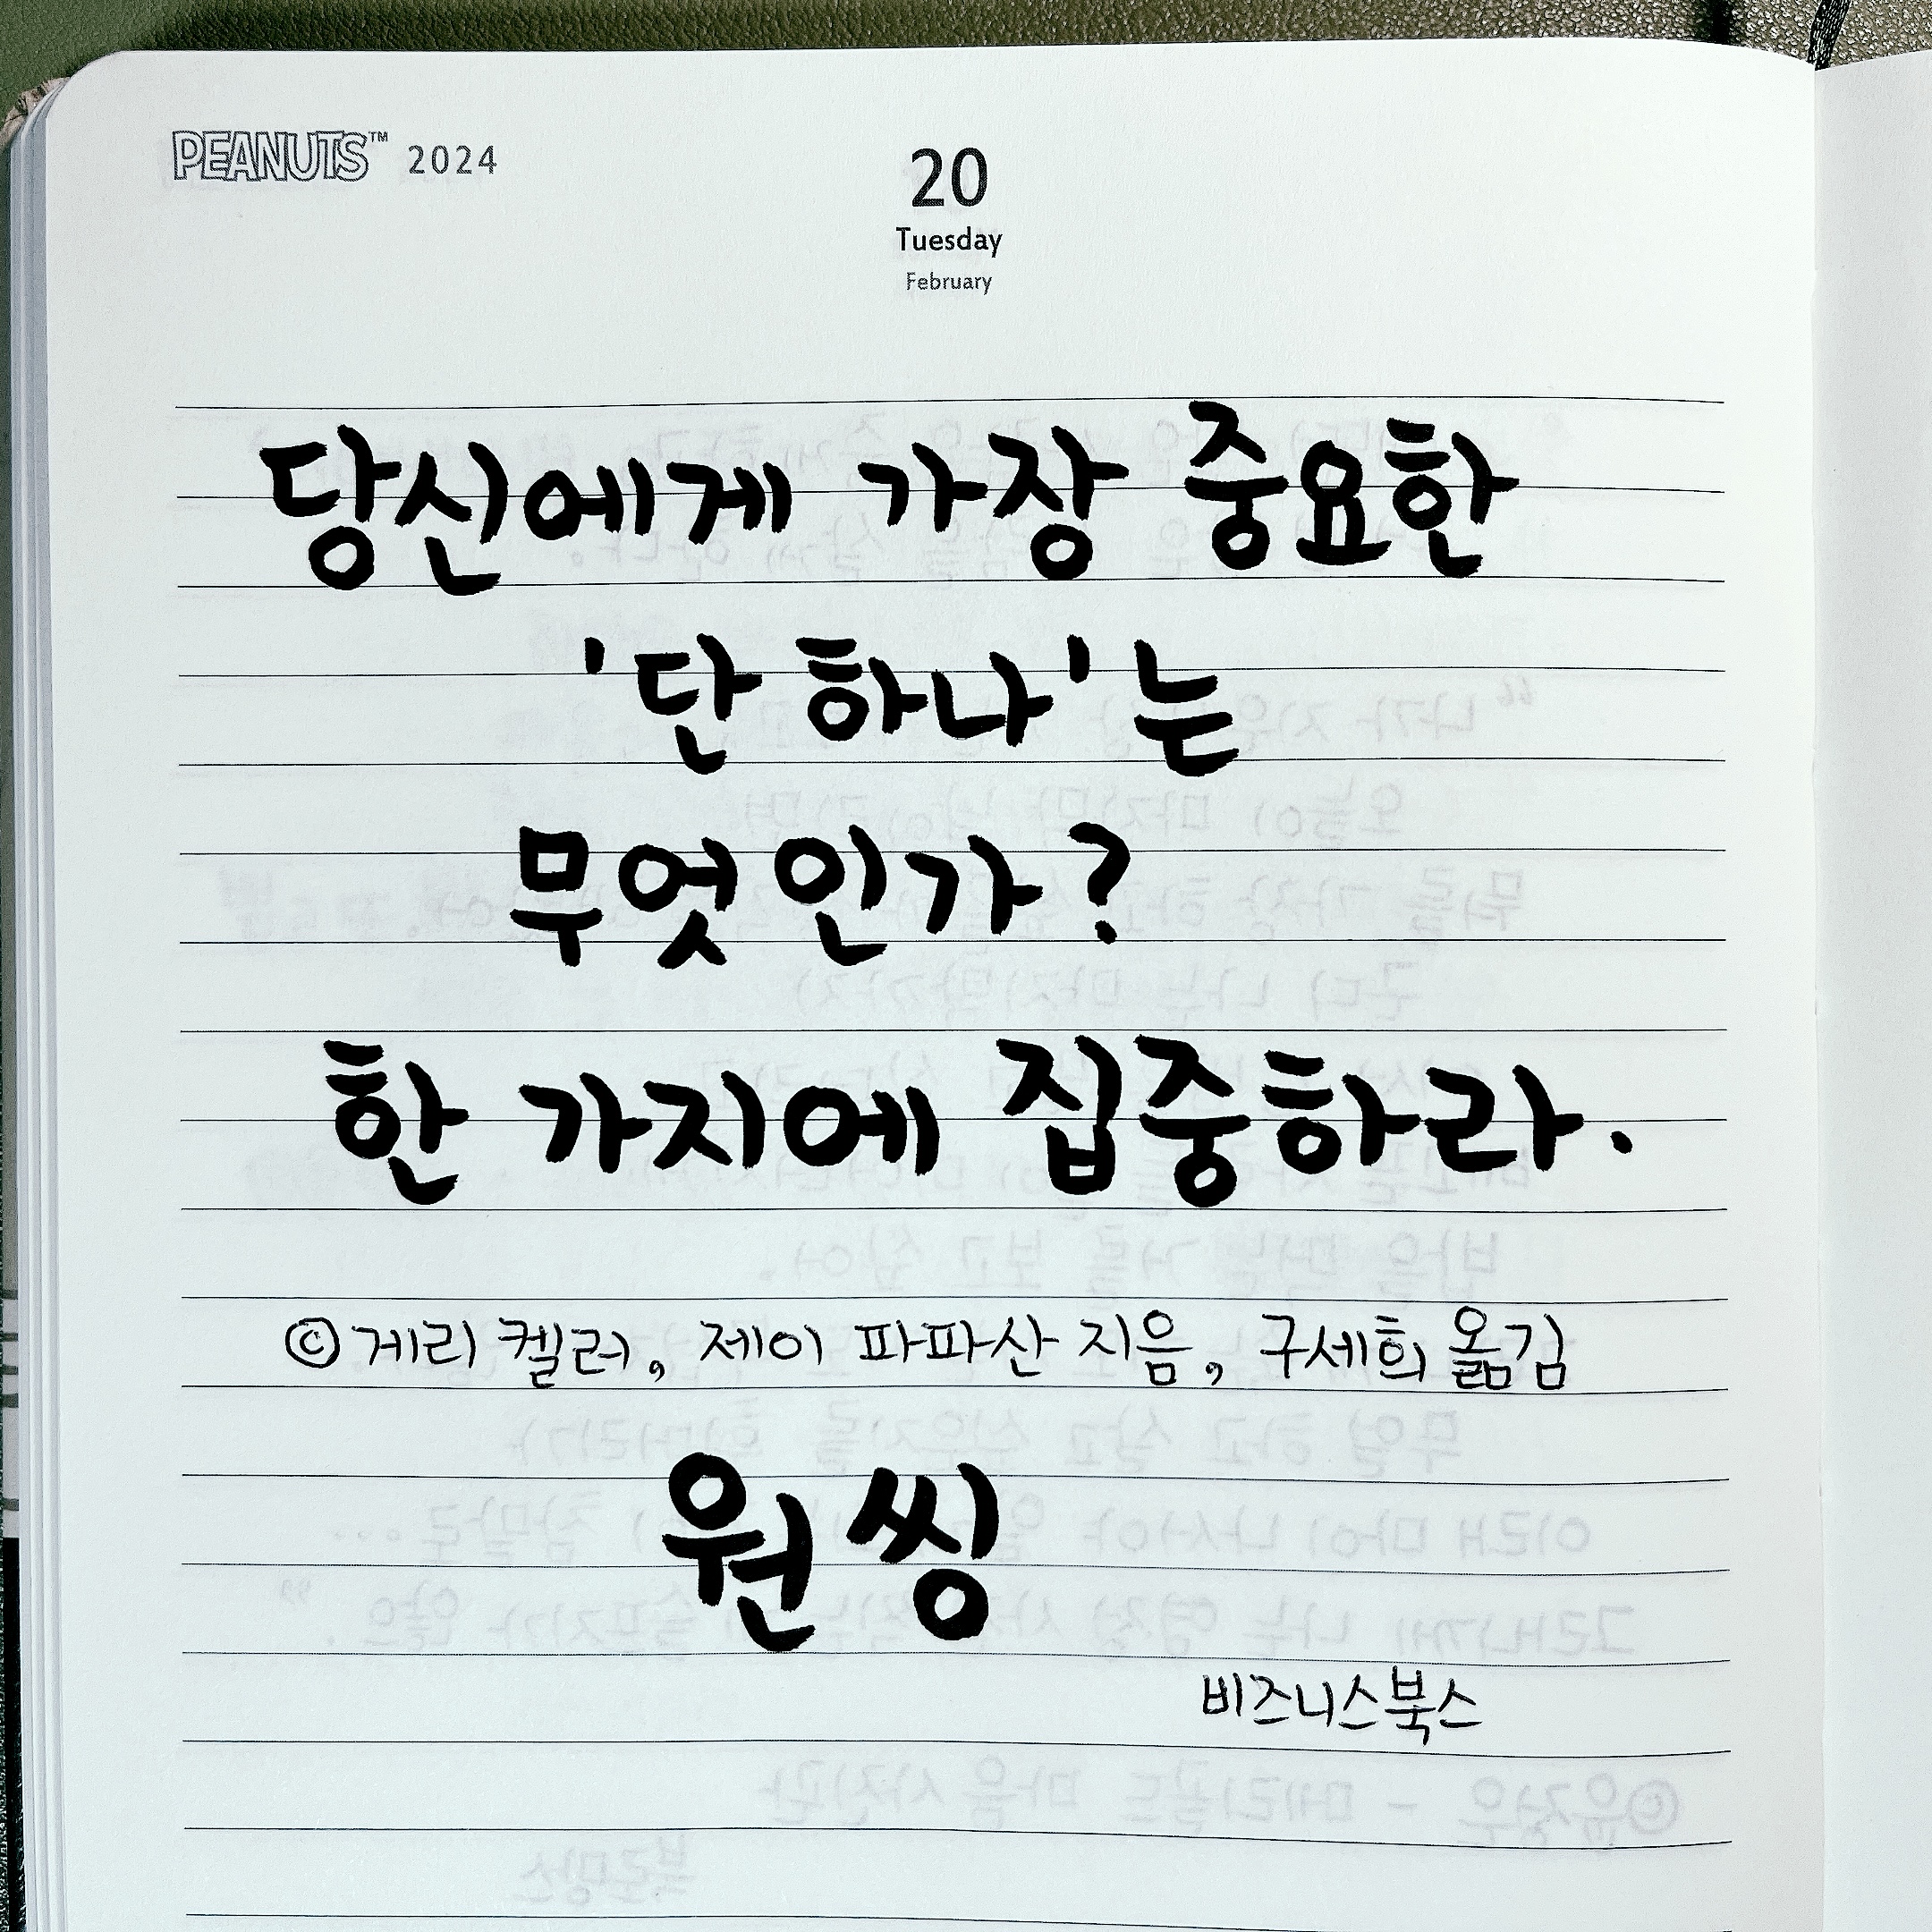 PEANUTS™ 2024
20
Tuesday
February
당신에게 가장 중요한
'단 하나'는
무엇인가?
한 가지에 집중하라.
©게리 켈러, 제이 파파산 지음, 구세희 옮김
원씽
비즈니스북스